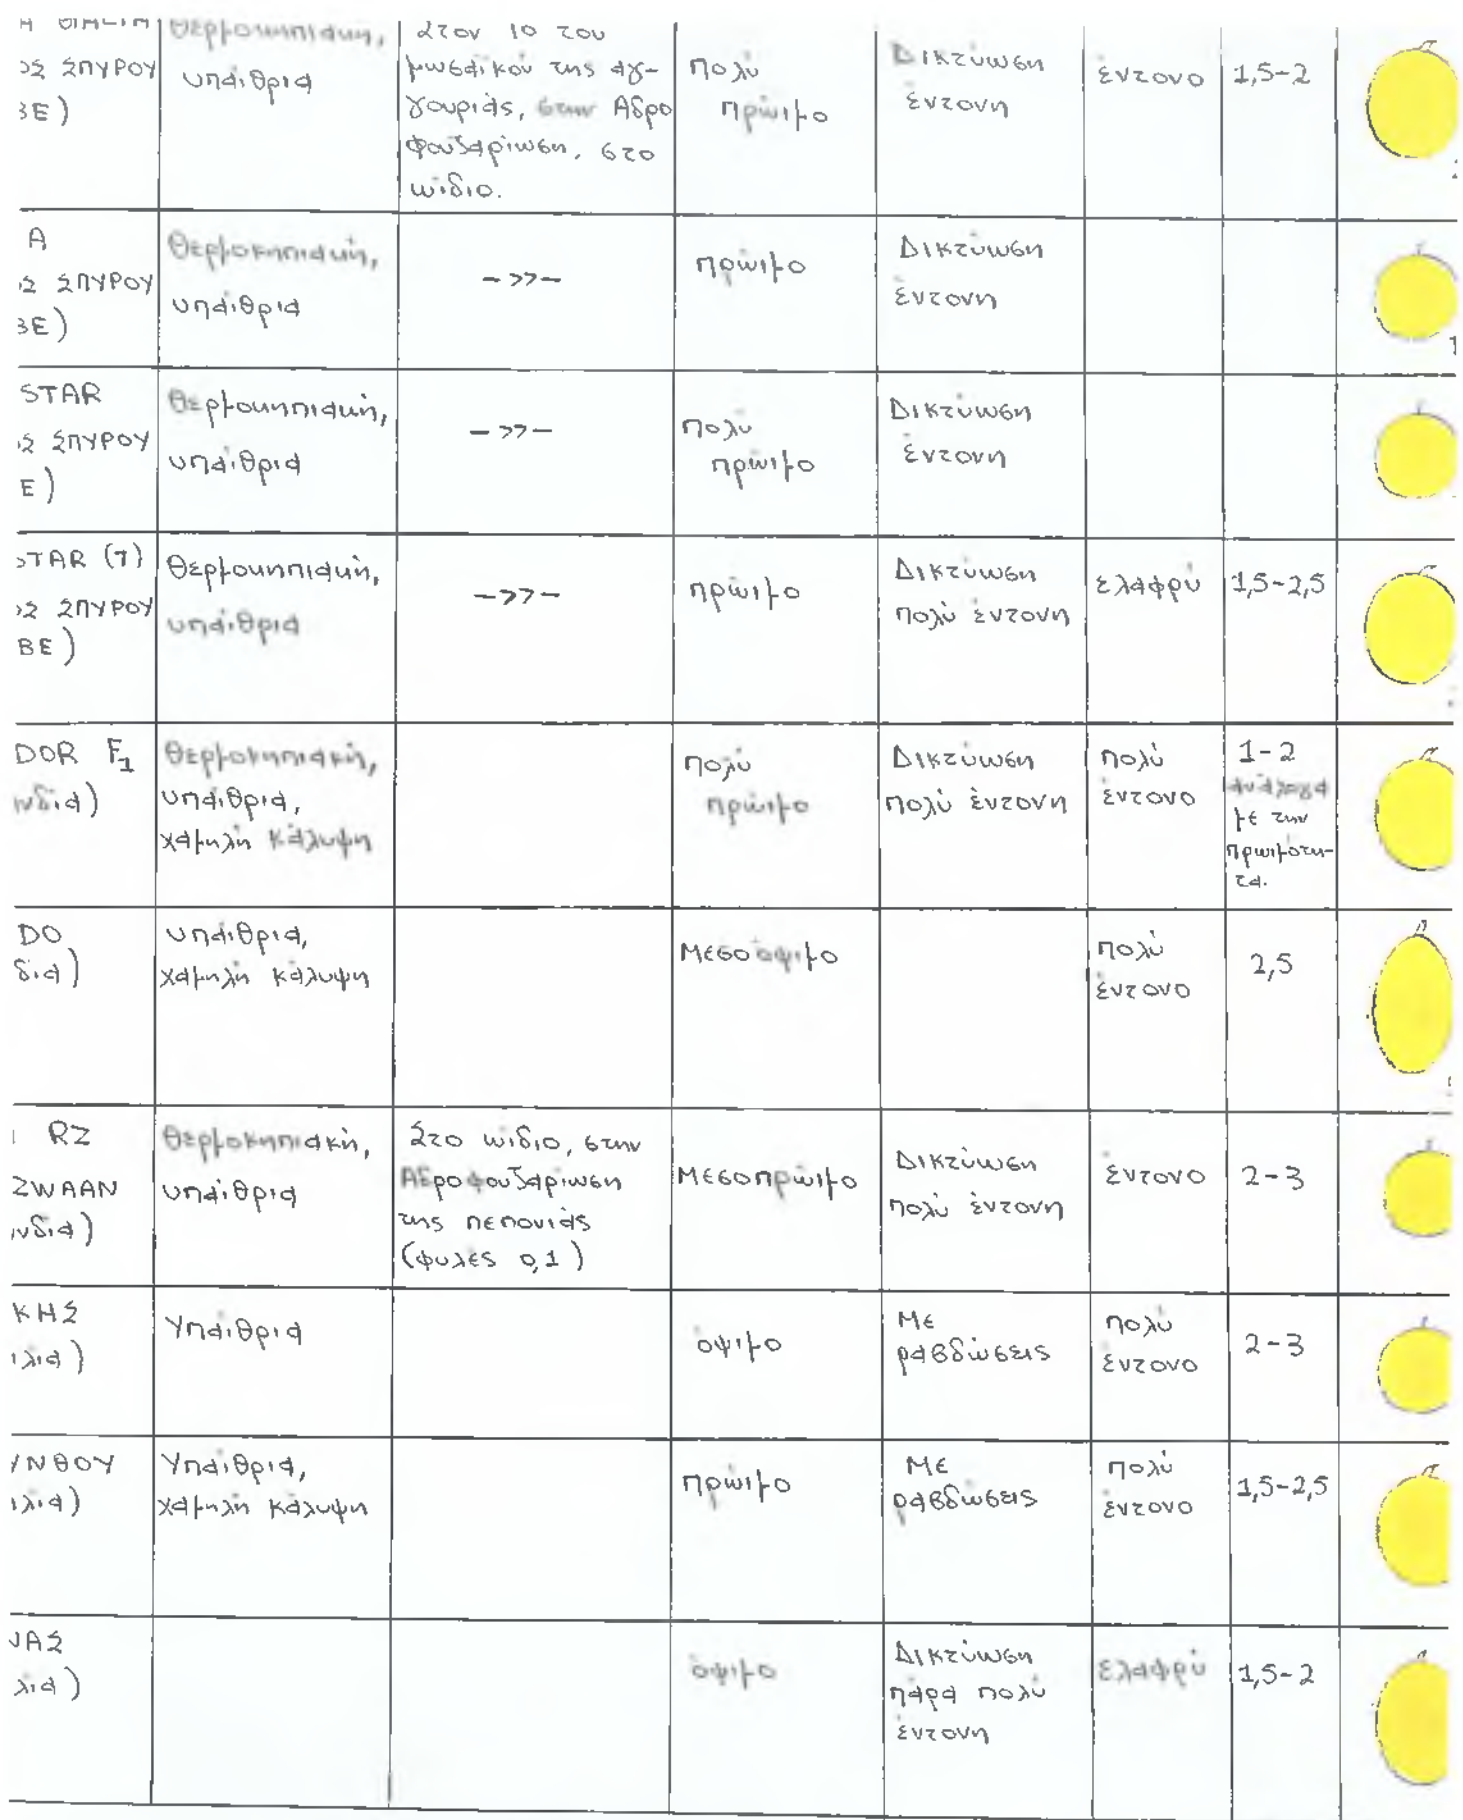 ΟΣ ΣΠΥΡΟΥ
ΒΕ)
Θερμοκηπιακή,
υπαίθρια
Στον ιό του
μωσαϊκού της αγ-
γουριάς, στην Αδρο
φουζαρίωση, στο
ωίδιο.
Πολύ
πρώιμο
Δικτύωση
έντονη
έντονο
1,5-2
Α
ΟΣ ΣΠΥΡΟΥ
ΒΕ)
Θερμοκηπιακή,
υπαίθρια
->>-
πρώιμο
Δικτύωση
έντονη
STAR
ΟΣ ΣΠΥΡΟΥ
Ε)
Θερμοκηπιακή,
υπαίθρια
->>-
Πολύ
πρώιμο
Δικτύωση
έντονη
STAR (T)
ΟΣ ΣΠΥΡΟΥ
ΒΕ)
Θερμοκηπιακή,
υπαίθρια
->>-
πρώιμο
Δικτύωση
πολύ έντονη
ελαφρύ
1,5-2,5
DOR F1
νδία)
Θερμοκηπιακή,
υπαίθρια,
χαμηλή κάλυψη
Πολύ
πρώιμο
Δικτύωση
πολύ έντονη
πολύ
έντονο
1-2
ανάλογα
με την
πρωιμότη-
τα.
DO
δία)
υπαίθρια,
χαμηλή κάλυψη
Μεσοόψιμο
πολύ
έντονο
2,5
RZ
ZWAAN
νδία)
Θερμοκηπιακή,
υπαίθρια
Στο ωίδιο, στην
Αδροφουζαρίωση
της πεπονιάς
(φυλές 0,1)
Μεσοπρώιμο
Δικτύωση
πολύ έντονη
έντονο
2-3
ΚΗΣ
λία)
Υπαίθρια
όψιμο
Με
ραβδώσεις
πολύ
έντονο
2-3
ΥΝΘΟΥ
λία)
Υπαίθρια,
χαμηλή κάλυψη
πρώιμο
Με
ραβδώσεις
πολύ
έντονο
1,5-2,5
ΝΑΣ
λία)
όψιμο
Δικτύωση
πάρα πολύ
έντονη
ελαφρύ
1,5-2